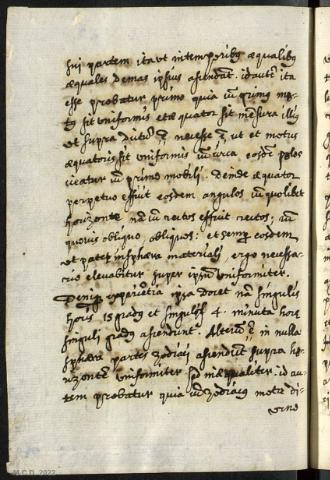 sui partem ita ut in temporibus æqualibus
æquales demas ipsius ascendant: id autē ita
esse probatur primo quia cū primus mo-
tus sit uniformis et æquator sit mēsura illius
ut supra dictū ē necesse ē ut et motus
æquatoris sit uniformis cū circa eosdē polos
cū primo mobili. deinde æquator
perpetuo efficit eosdem angulos cū quolibet
horizonte nā cū rectos efficit rectos; cū
quovis obliquo, obliquos: et semp eosdem
ut patet in sphæra materiali, ergo necessa-
rio elevabitur super ipsū uniformiter.
Deniq experiētia ipsa docet nā singulis
horis 15 gradus et singulis 4 minuta horæ
singuli gradus ascendunt. Alterū ē in nulla
sphæra partes zodiaci ascendūt supra ho-
rizontē uniformiter sed inæqualiter. id au-
tem probatur quia cū zodiacus motu di-
urno
M.C.D. 2022